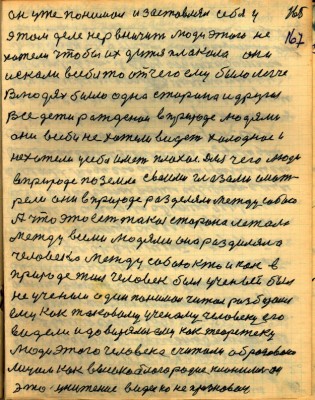 он уже понимал и заставлял себя у 168
этом деле нервничить люди этого не 167
хотели чтобы их дитя плакала они
искали в себя то от чего ему было легче
В людях было одна старана и другая
Все дети рождёной в природе людями
они в себе не хотели видеть холодное и
не хотели у себя иметь плохое для чего люди
в природе по земле своими глазами смот
рели они в природе разделяли между собою
А что это есть такая старана летала
между всеми людями она разделяла
человека между собою кто и как в
природе жил человек был ученый был
не ученый один понимал читал разбирал
ему как таковому ученому человеку его
видели и доверяли ему как теоретеку
люди этого человека считали образован
лицом как высоко благородие
это унижение видко не